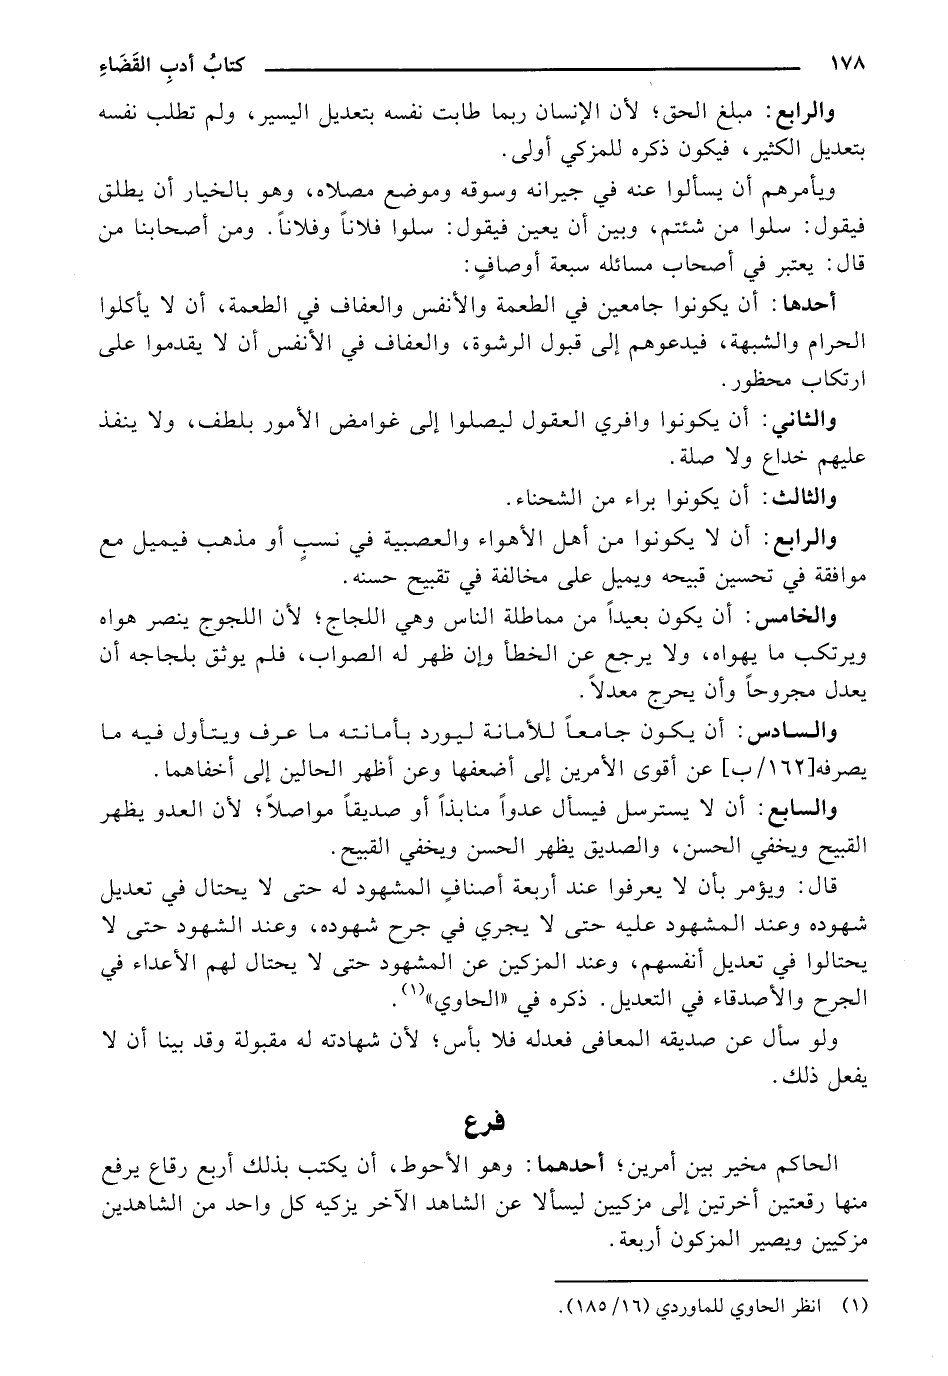 ١٧٨ كتابُ أدبِ القَضَاءِ
والرابع: مبلغ الحق؛ لأن الإنسان ربما طابت نفسه بتعديل اليسير، ولم تطلب نفسه
بتعديل الكثير، فيكون ذكره للمزكي أولى.
ويأمرهم أن يسألوا عنه في جيرانه وسوقه وموضع مصلاه، وهو بالخيار أن يطلق
فيقول: سلوا من شئتم، وبين أن يعين فيقول: سلوا فلاناً وفلاناً. ومن أصحابنا من
قال: يعتبر في أصحاب مسائله سبعة أوصافٍ:
أحدها: أن يكونوا جامعين في الطعمة والأنفس والعفاف في الطعمة، أن لا يأكلوا
الحرام والشبهة، فيدعوهم إلى قبول الرشوة، والعفاف في الأنفس أن لا يقدموا على
ارتكاب محظور.
والثاني: أن يكونوا وافري العقول ليصلوا إلى غوامض الأمور بلطف، ولا ينفذ
عليهم خداع ولا صلة.
والثالث: أن يكونوا براء من الشحناء.
والرابع: أن لا يكونوا من أهل الأهواء والعصبية في نسبٍ أو مذهب فيميل مع
موافقة في تحسين قبيحه ويميل على مخالفة في تقبيح حسنه.
والخامس: أن يكون بعيداً من مماطلة الناس وهي اللجاج؛ لأن اللجوج ينصر هواه
ويرتكب ما يهواه، ولا يرجع عن الخطأ وإن ظهر له الصواب، فلم يوثق بلجاجه أن
يعدل مجروحاً وأن يحرج معدلاً.
والسادس: أن يكون جامعاً للأمانة ليورد بأمانته ما عرف ويتأول فيه ما
يصرفه[١٦٢/ب] عن أقوى الأمرين إلى أضعفها وعن أظهر الحالين إلى أخفاهما.
والسابع: أن لا يسترسل فيسأل عدواً منابذاً أو صديقاً مواصلاً؛ لأن العدو يظهر
القبيح ويخفي الحسن، والصديق يظهر الحسن ويخفي القبيح.
قال: ويؤمر بأن لا يعرفوا عند أربعة أصنافٍ المشهود له حتى لا يحتال في تعديل
شهوده وعند المشهود عليه حتى لا يجري في جرح شهوده، وعند الشهود حتى لا
يحتالوا في تعديل أنفسهم، وعند المزكين عن المشهود حتى لا يحتال لهم الأعداء في
الجرح والأصدقاء في التعديل. ذكره في «الحاوي»(١).
ولو سأل عن صديقه المعافى فعدله فلا بأس؛ لأن شهادته له مقبولة وقد بينا أن لا
يفعل ذلك.
فرع
الحاكم مخير بين أمرين؛ أحدهما: وهو الأحوط، أن يكتب بذلك أربع رقاع يرفع
منها رقعتين أخرتين إلى مزكيين ليسألا عن الشاهد الآخر يزكيه كل واحد من الشاهدين
مزكيين ويصير المزكون أربعة.
(١) انظر الحاوي للماوردي (١٦/ ١٨٥).